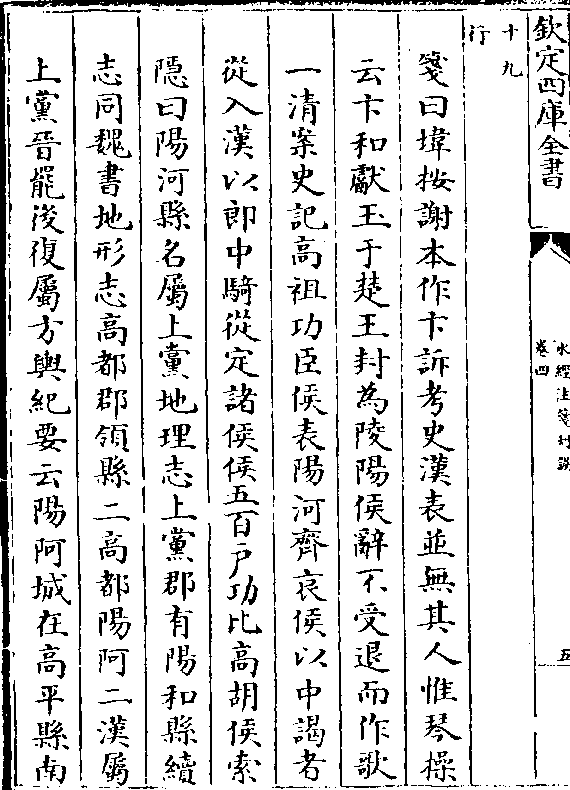 欽定四庫全書
水經注箋刊誤
卷四
五
十九
行
箋曰墇按謝本作卞訴考史漢表並無其人惟琴操
云卞和獻玉于楚王封為陵陽侯辭不受退而作歌
一清案史記高祖功臣侯表陽河齊哀侯以中謁者
從入漢以郎中騎從定諸侯侯五百户功比高胡侯索
隱曰陽河縣名屬上黨地理志上黨郡有陽和縣續
志同魏書地形志高都郡領縣二高都陽阿二漢屬
上黨晉罷後復屬方輿紀要云陽阿城在高平縣南